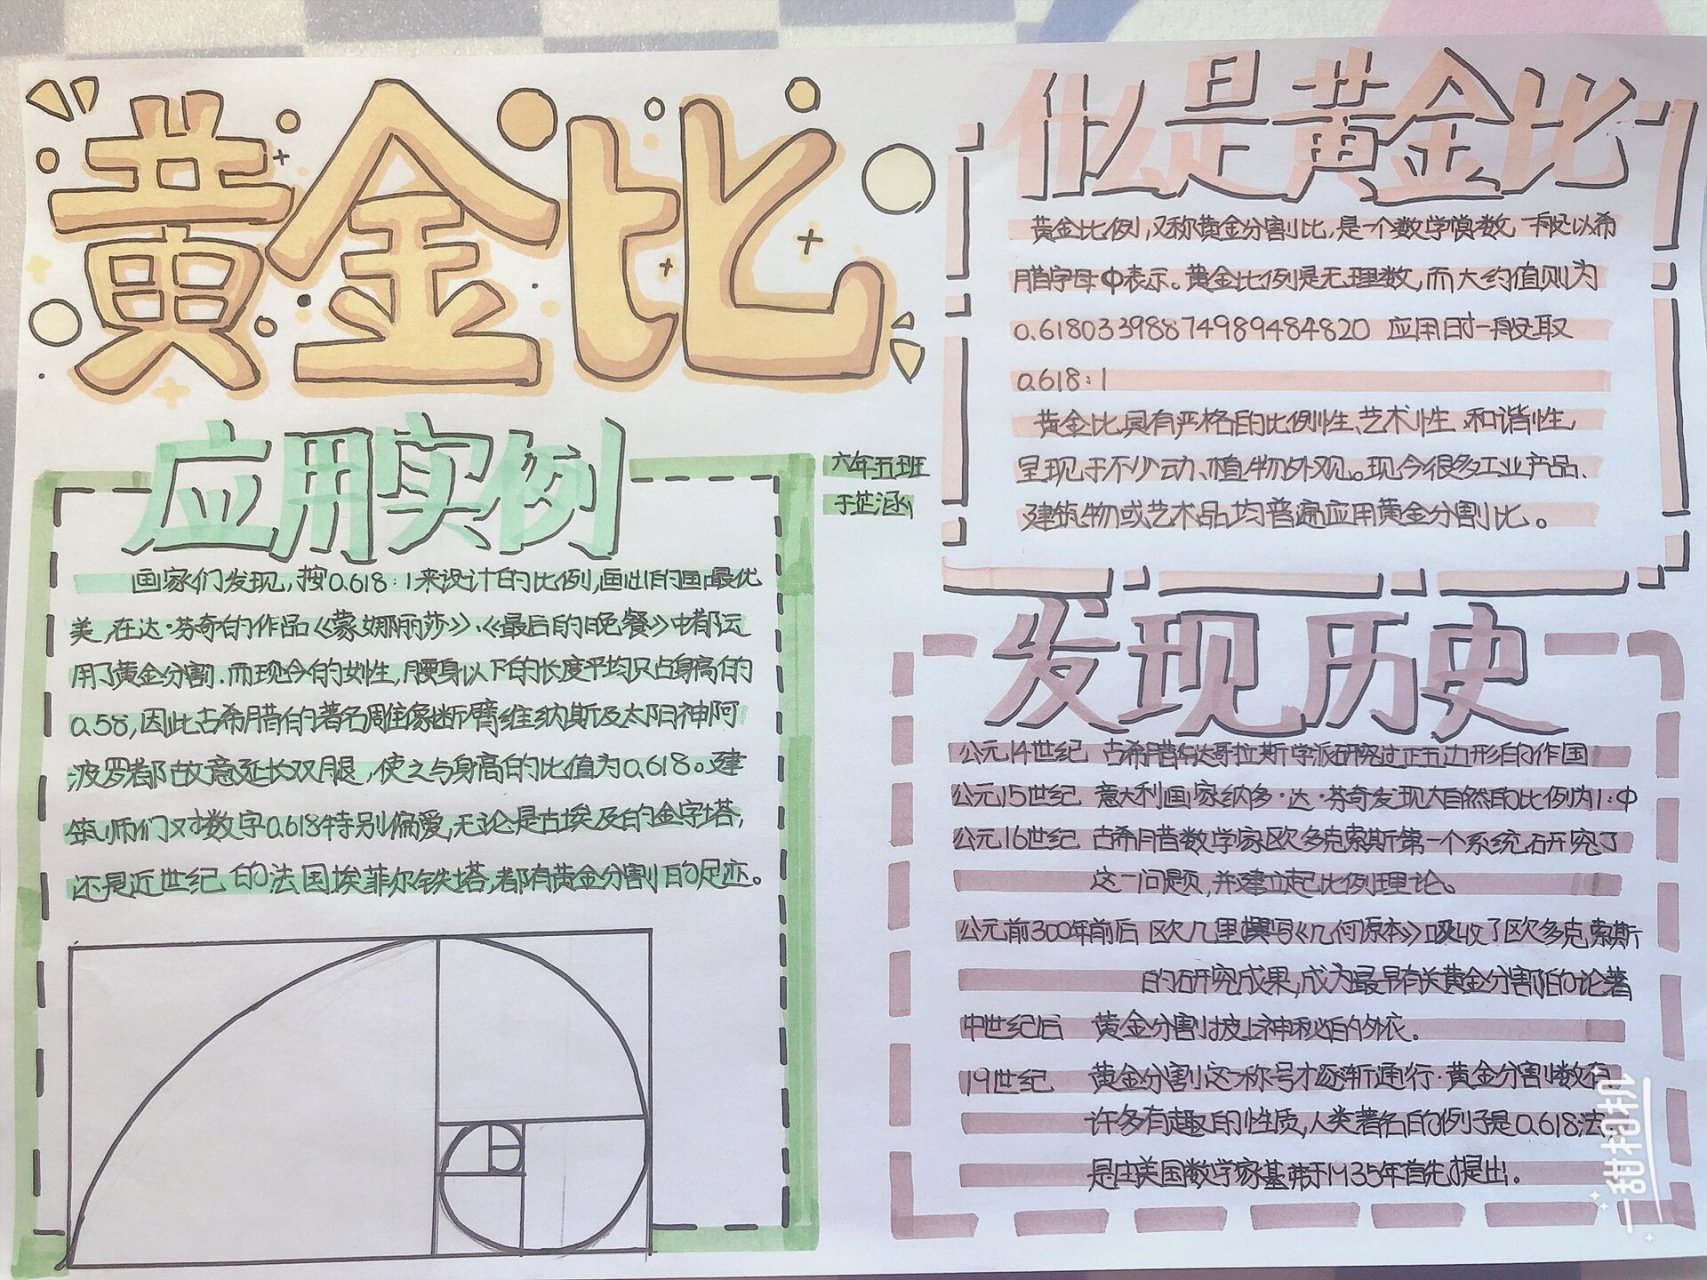 黄金比
什么是黄金比
黄金比例,又称黄金分割比,是一个数学常数,一般以希
腊字母中表示。黄金比例是无理数,而大约值则为
0.61803398874989484820 应用时一般取
0.618:1
黄金比具有严格的比例性、艺术性、和谐性,
呈现于不少动、植物外观。现今很多工业产品、
建筑物或艺术品均普遍应用黄金分割比。
应用实例
六年五班
于芷涵
画家们发现,按0.618:1来设计的比例,画出的画最优
美,在达·芬奇的作品《蒙娜丽莎》、《最后的晚餐》中都运
用了黄金分割.而现今的女性,腰身以下的长度平均只占身高的
0.58,因此古希腊的著名雕像断臂维纳斯及太阳神阿
波罗都故意延长双腿,使之与身高的比值为0.618。建
筑师们对数字0.618特别偏爱,无论是古埃及的金字塔,
还是近世纪的法国埃菲尔铁塔,都有黄金分割的足迹。
发现历史
公元14世纪 古希腊毕达哥拉斯学派研究过正五边形的作图
公元15世纪 意大利画家纳多·达·芬奇发现大自然的比例为1:中
公元16世纪 古希腊数学家欧多克索斯第一个系统研究了
这一问题,并建立起比例理论。
公元前300年前后 欧几里撰写《几何原本》吸收了欧多克索斯
的研究成果,成为最早有关黄金分割的论著
中世纪后 黄金分割披上神秘的外衣。
19世纪 黄金分割这一称号才逐渐通行.黄金分割数有
许多有趣的性质,人类著名的例子是0.618法,
是由美国数学家基弗于1935年首先提出.
甜相机